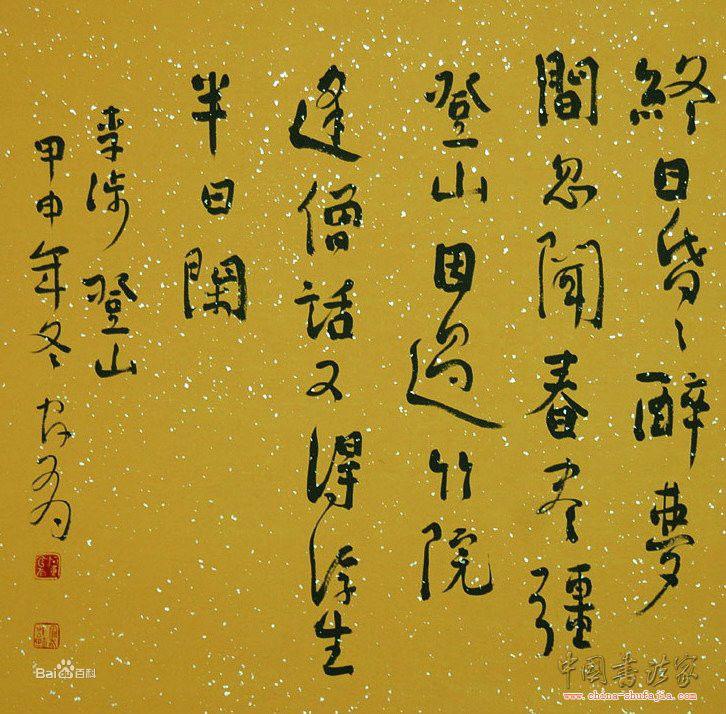 終日昏々醉夢
間忽聞春盡彊
登山因過竹院
逢僧話又得浮生
半日閑
李涉登山
甲申年冬
Bai百科
中国书法家
www.china-shufajia.com